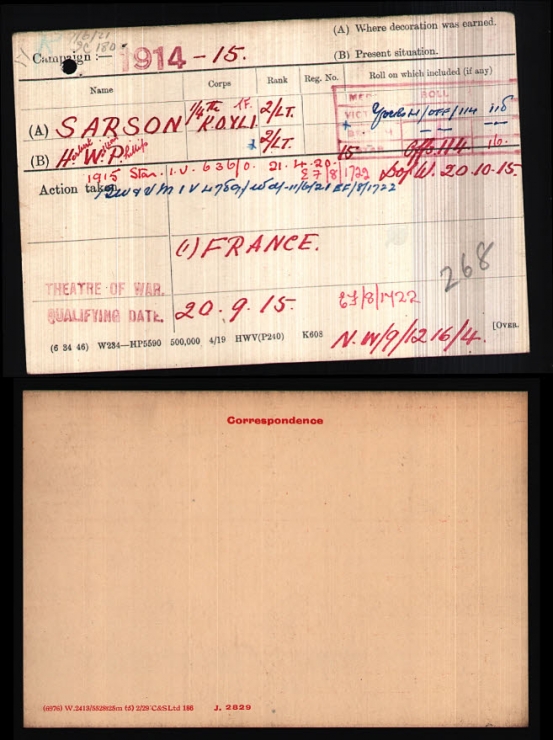 7/6/21
9C 180
(A) Where decoration was earned.
Campaign :— 1914 - 15.
(B) Present situation.
Name Corps Rank Reg. No. Roll on which included (if any)
MEDAL ROLL
(A) SARSON 1/4th T.F. 2/LT. VICTORY Yorks H/OFF/114 118
KOYLI
(B) H. W. P. 2/LT.
Herbert William Phillip
15 STAR Off/114 16.
1915 Star. I.V. 636/D. 21.4.20. E7/8/1722 D of W. 20.10.15.
Action taken EF/8/1722
(1) FRANCE.
268
THEATRE OF WAR.
QUALIFYING DATE. 20.9.15. EF/8/1722
(6 34 46) W234—HP5590 500,000 4/19 HWV(P240) K608 [OVER.
N.W/9/1216/4.
Correspondence
(6976) W.2413/5529825m (5) 2/29 C&SLtd 166 J. 2829